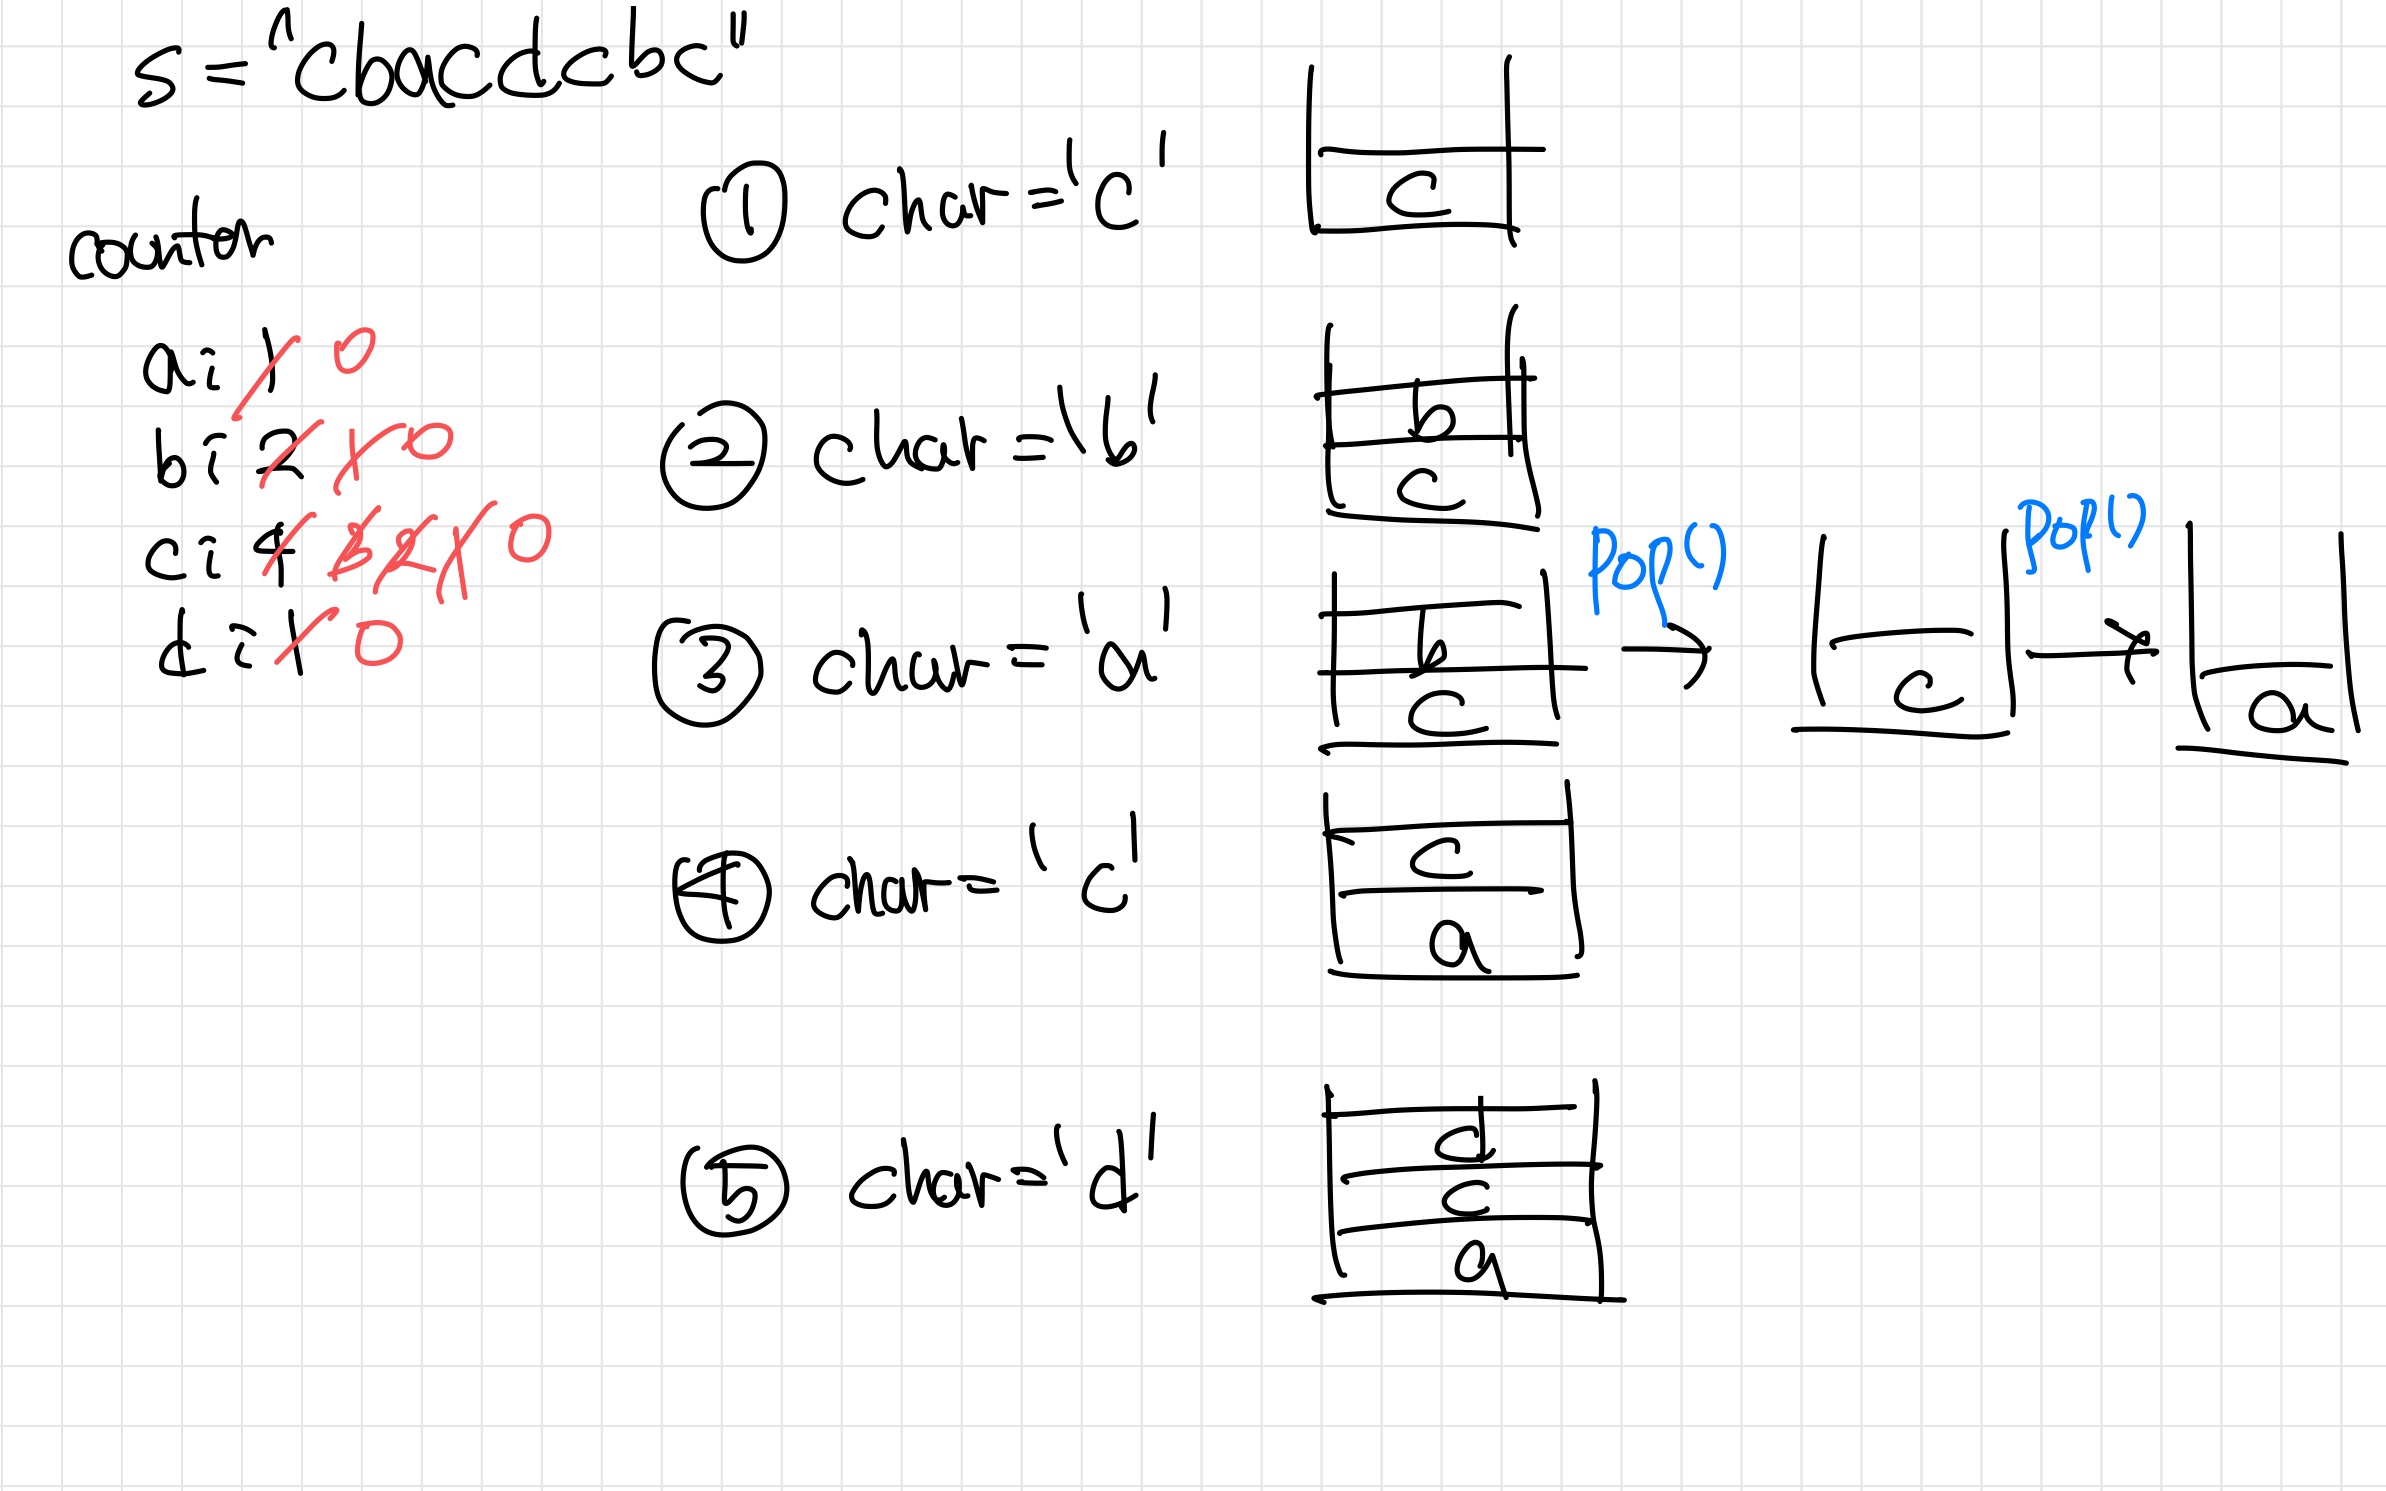 s = "cbacdcbc"
counter
a: 1 0
b: 2 1 0
c: 4 3 2 1 0
d: 1 0
① char = 'c'
c
② char = 'b'
b
c
③ char = 'a'
b
c
pop()
c
pop()
a
④ char = 'c'
c
a
⑤ char = 'd'
d
c
a